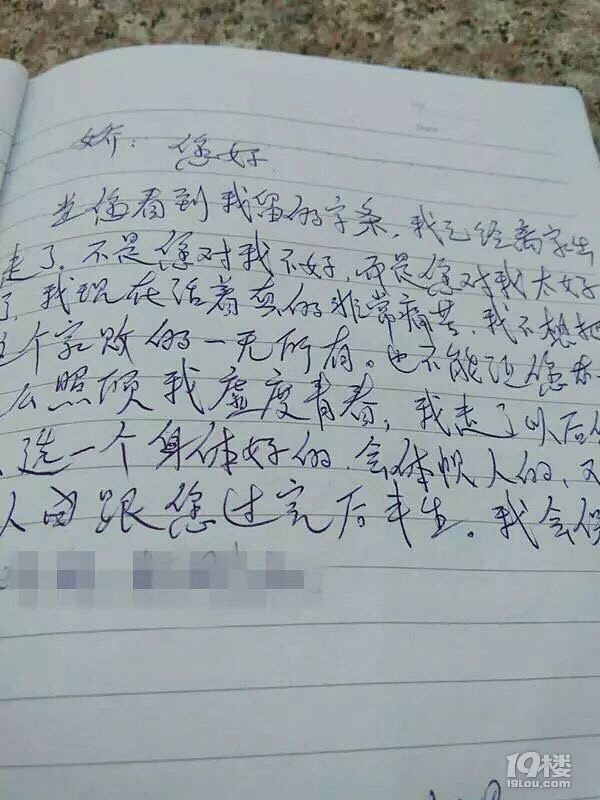 娇：您好
当您看到我留的字条，我已经离家出
走了，不是您对我不好，而是您对我太好
了，我现在活着真的非常痛苦，我不想把
这个家败的一无所有。也不能让您
么照顾我虚度青春，我走了以后
选一个身体好的，会体贴人的，又
人田跟您过完后半生。我会
19楼
19lou.com